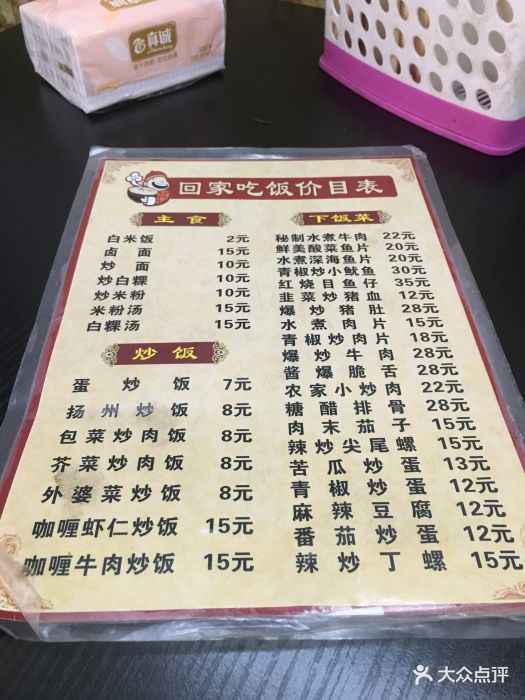 真诚
回家吃饭价目表
主食
白米饭 2元
卤面 15元
炒面 10元
炒白粿 10元
炒米粉 10元
米粉汤 15元
白粿汤 15元
炒饭
蛋炒饭 7元
扬州炒饭 8元
包菜炒肉饭 8元
芥菜炒肉饭 8元
外婆菜炒饭 8元
咖喱虾仁炒饭 15元
咖喱牛肉炒饭 15元
下饭菜
秘制水煮牛肉 22元
鲜美酸菜鱼片 20元
水煮深海鱼片 20元
青椒炒小鱿鱼 30元
红烧目鱼仔 35元
韭菜炒猪血 12元
爆炒猪肚 28元
水煮肉片 15元
青椒炒肉片 18元
爆炒牛肉 28元
酱爆脆舌 28元
农家小炒肉 22元
糖醋排骨 28元
肉末茄子 15元
辣炒尖尾螺 15元
苦瓜炒蛋 13元
青椒炒蛋 12元
麻辣豆腐 12元
番茄炒蛋 12元
辣炒丁螺 15元
大众点评